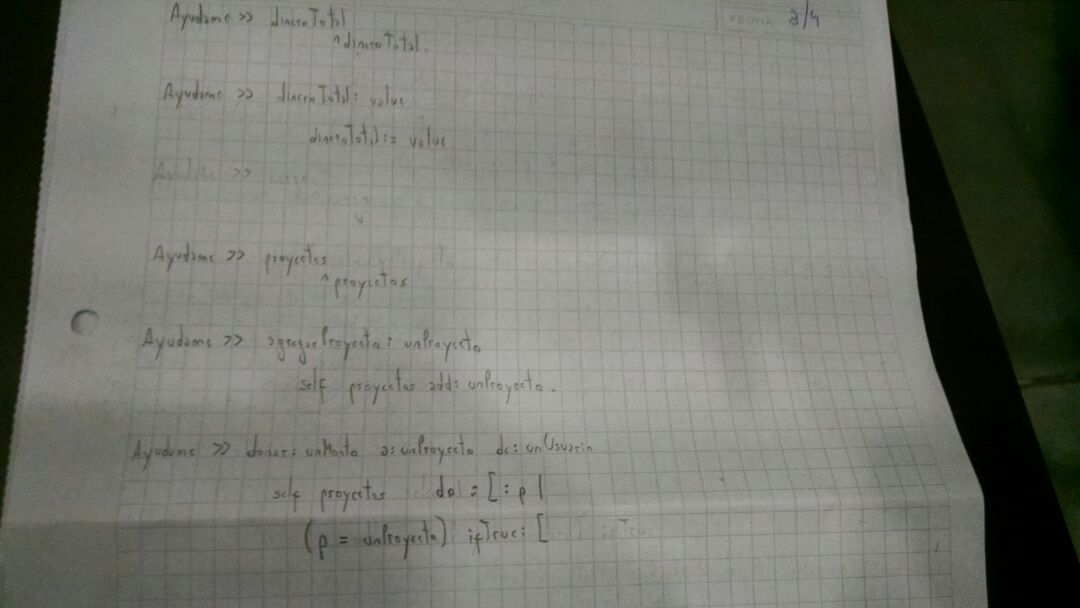 FECHA 3/4
Ayudame >> dineroTotal
^dineroTotal.
Ayudame >> dineroTotal: value
dineroTotal:= value
Ayudame >> proyectos
^proyectos
Ayudame >> agregarProyecto: unProyecto
self proyectos add: unProyecto.
Ayudame >> donar: unMonto a: unProyecto de: unUsuario
self proyectos do: [:p |
(p = unProyecto) ifTrue: [